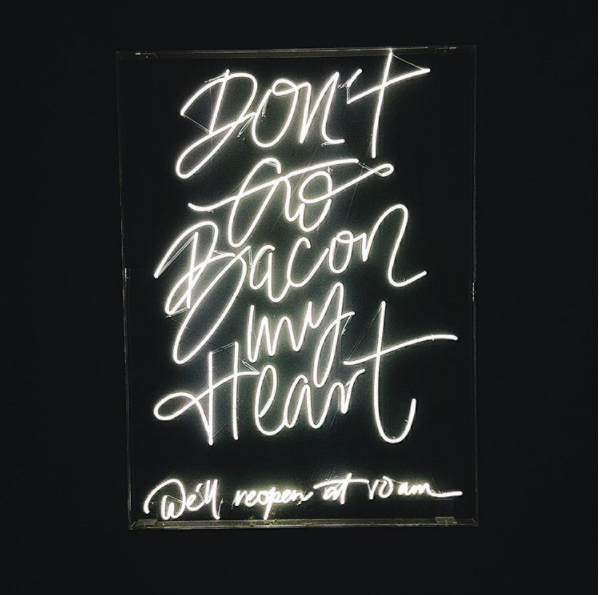 Don't
Go
Bacon
my
Heart
We'll reopen at 10 am